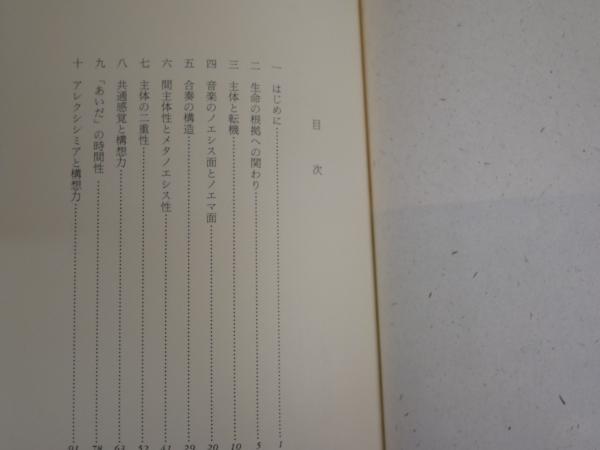 目次
一 はじめに……1
二 生命の根拠への関わり……5
三 主体と転機……10
四 音楽のノエシス面とノエマ面……20
五 合奏の構造……29
六 間主体性とメタノエシス性……41
七 主体の二重性……53
八 共通感覚と構想力……63
九 「あいだ」の時間性……78
十 アレクシシミアと構想力……91